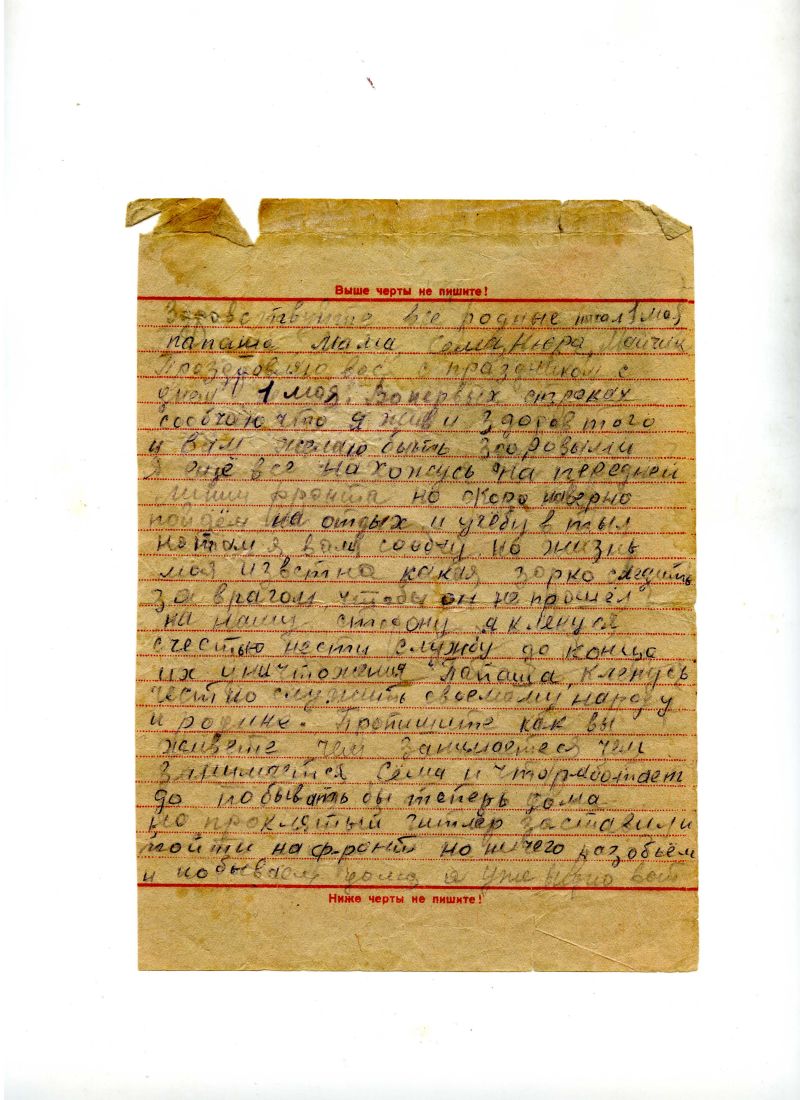 Выше черты не пишите!
Здравствуйте все родные писал 1 мая
папаша мама Сема, Нюра, Майчик
Проздровляю вас с праздником с
днем 1 мая. Во первых строках
сообчаю что я жив и здоров того
и вам желаю быть здоровыми
Я ещё все нахожусь на передней
линии фронта но скоро наверно
пойдём на отдых и учёбу в тыл
но там я вам сообчу но жизнь
моя известно какая зорко следить
за врагом, чтобы он не прошёл
на нашу сторону, я кленуся
счестью нести службу до конца
их уничтожения Папаша, кленусь
честно служить своемому народу
и родине. Пропишите как вы
живете чем занимаетеся чем
занимается Сёма и что работает
да побывать бы теперь дома
но проклятый гитлер заставили
пойти на фронт но ничего разобьём
и побываем дома я уже
Ниже черты не пишите!